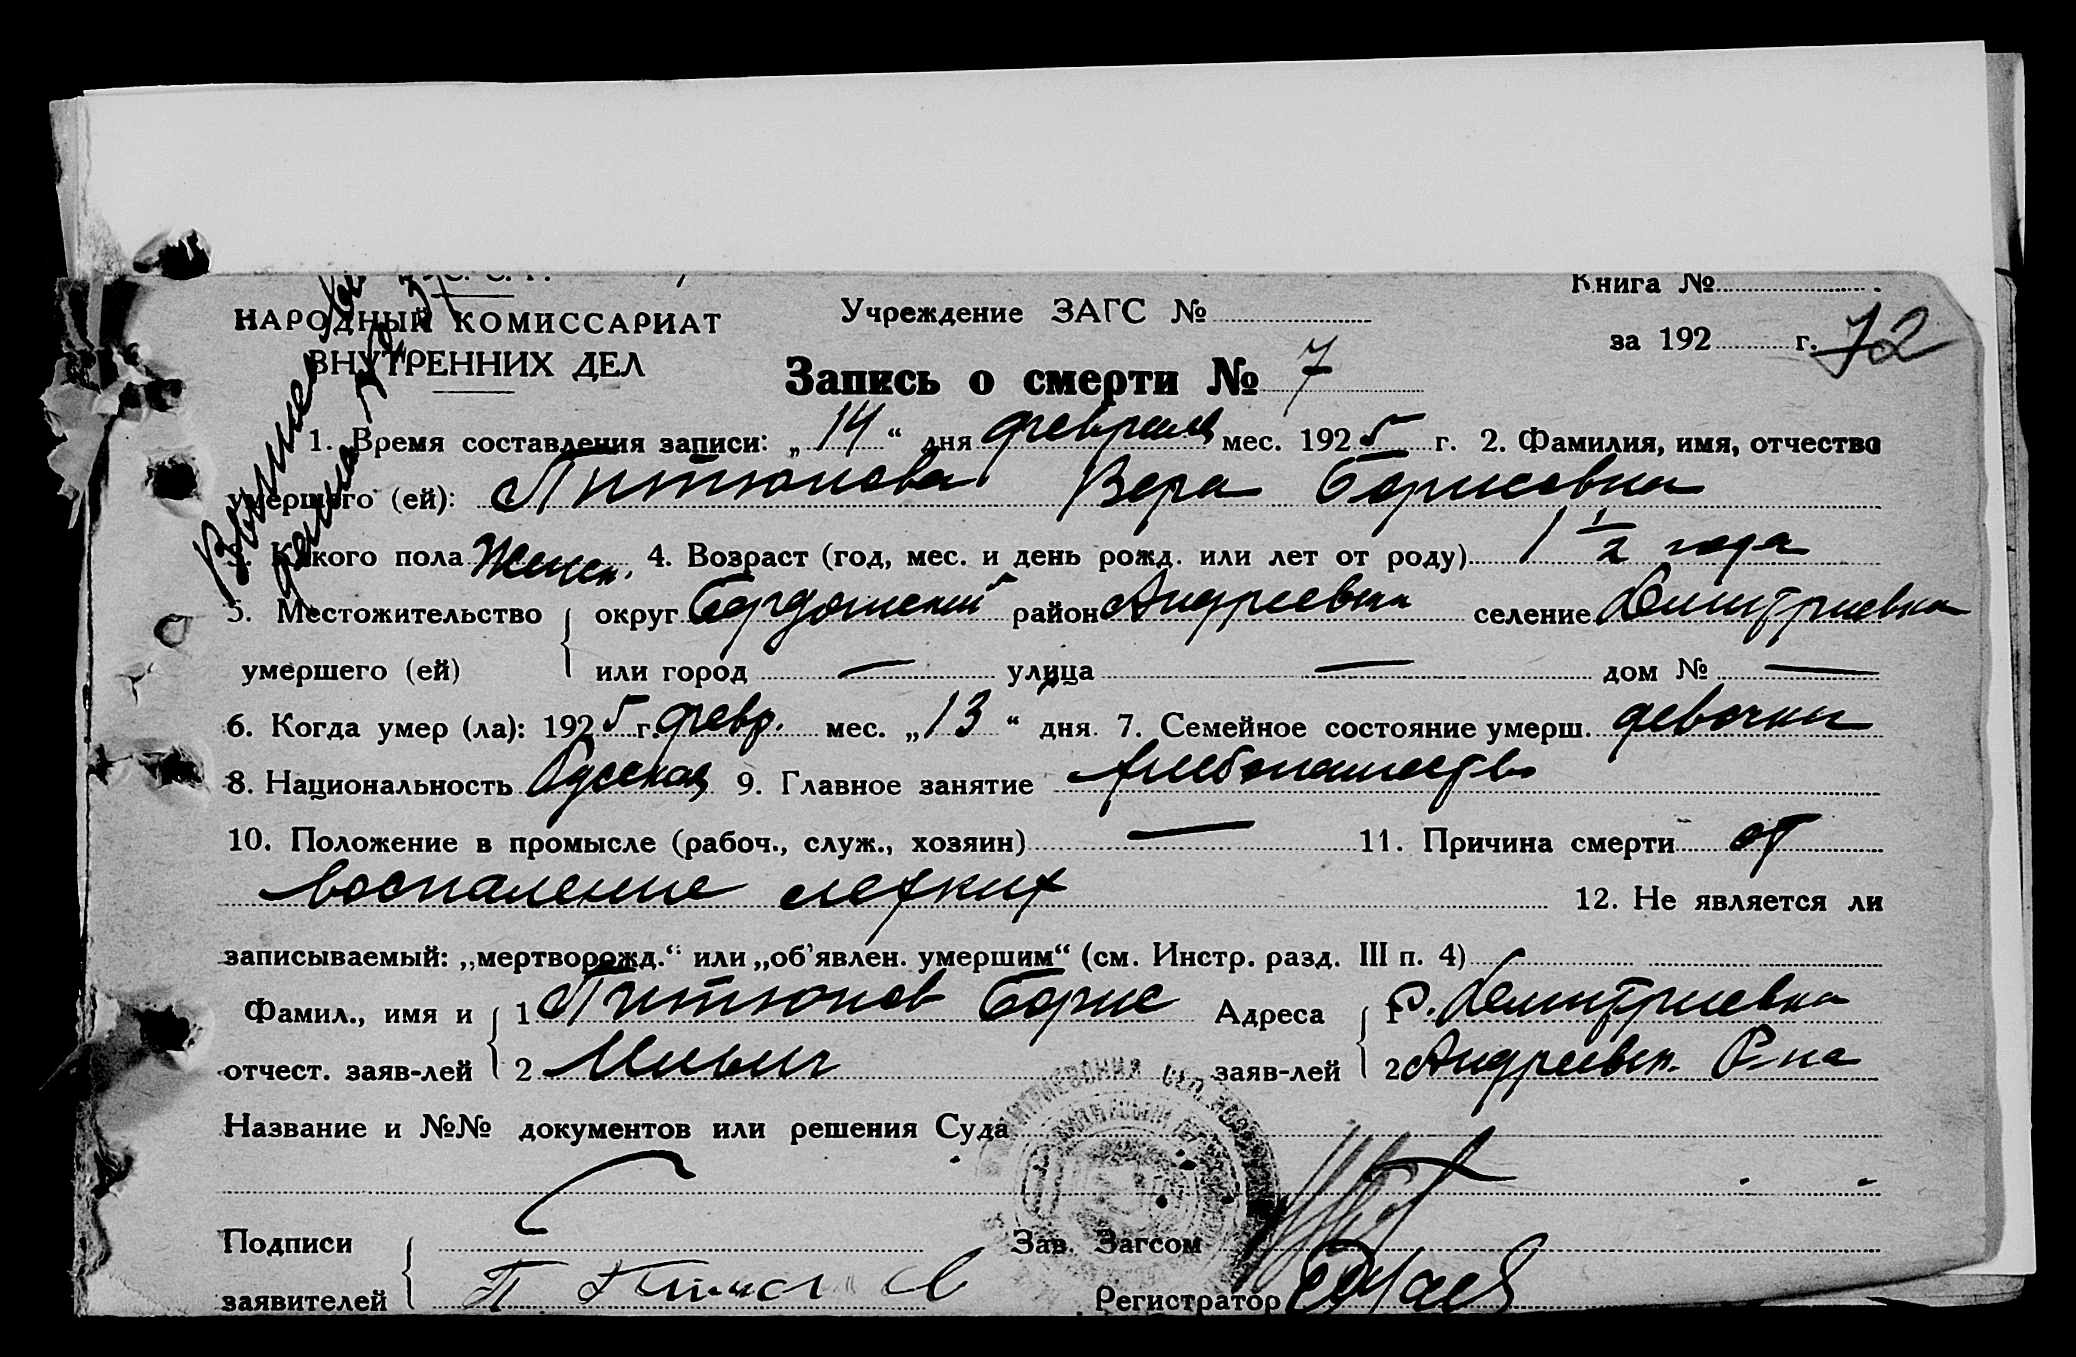 НАРОДНЫЙ КОМИССАРИАТ
ВНУТРЕННИХ ДЕЛ
Учреждение ЗАГС №
Книга №
за 192 г. 72
Запись о смерти № 7
1. Время составления записи: „14“ дня февраля мес. 1925 г. 2. Фамилия, имя, отчество
умершего (ей): Питюнова Вера Борисовна
3. Какого пола Женск. 4. Возраст (год, мес. и день рожд. или лет от роду) 1 1/2 года
5. Местожительство округ район Андреевка селение Дмитриевка
умершего (ей) или город — улица — дом № —
6. Когда умер (ла): 1925 г. февр. мес. „13“ дня. 7. Семейное состояние умерш. девочка
8. Национальность Русская 9. Главное занятие хлебопашество
10. Положение в промысле (рабоч., служ., хозяин) — 11. Причина смерти от
воспаление легких 12. Не является ли
записываемый: „мертворожд.“ или „об'явлен. умершим“ (см. Инстр. разд. III п. 4)
Фамил., имя и 1 Питюнов Борис Адреса 1 с. Дмитриевка
отчест. заяв-лей 2 Ильич заяв-лей 2 Андреевск. Р-на
Название и №№ документов или решения Суда
Подписи Зав. Загсом
заявителей Регистратор